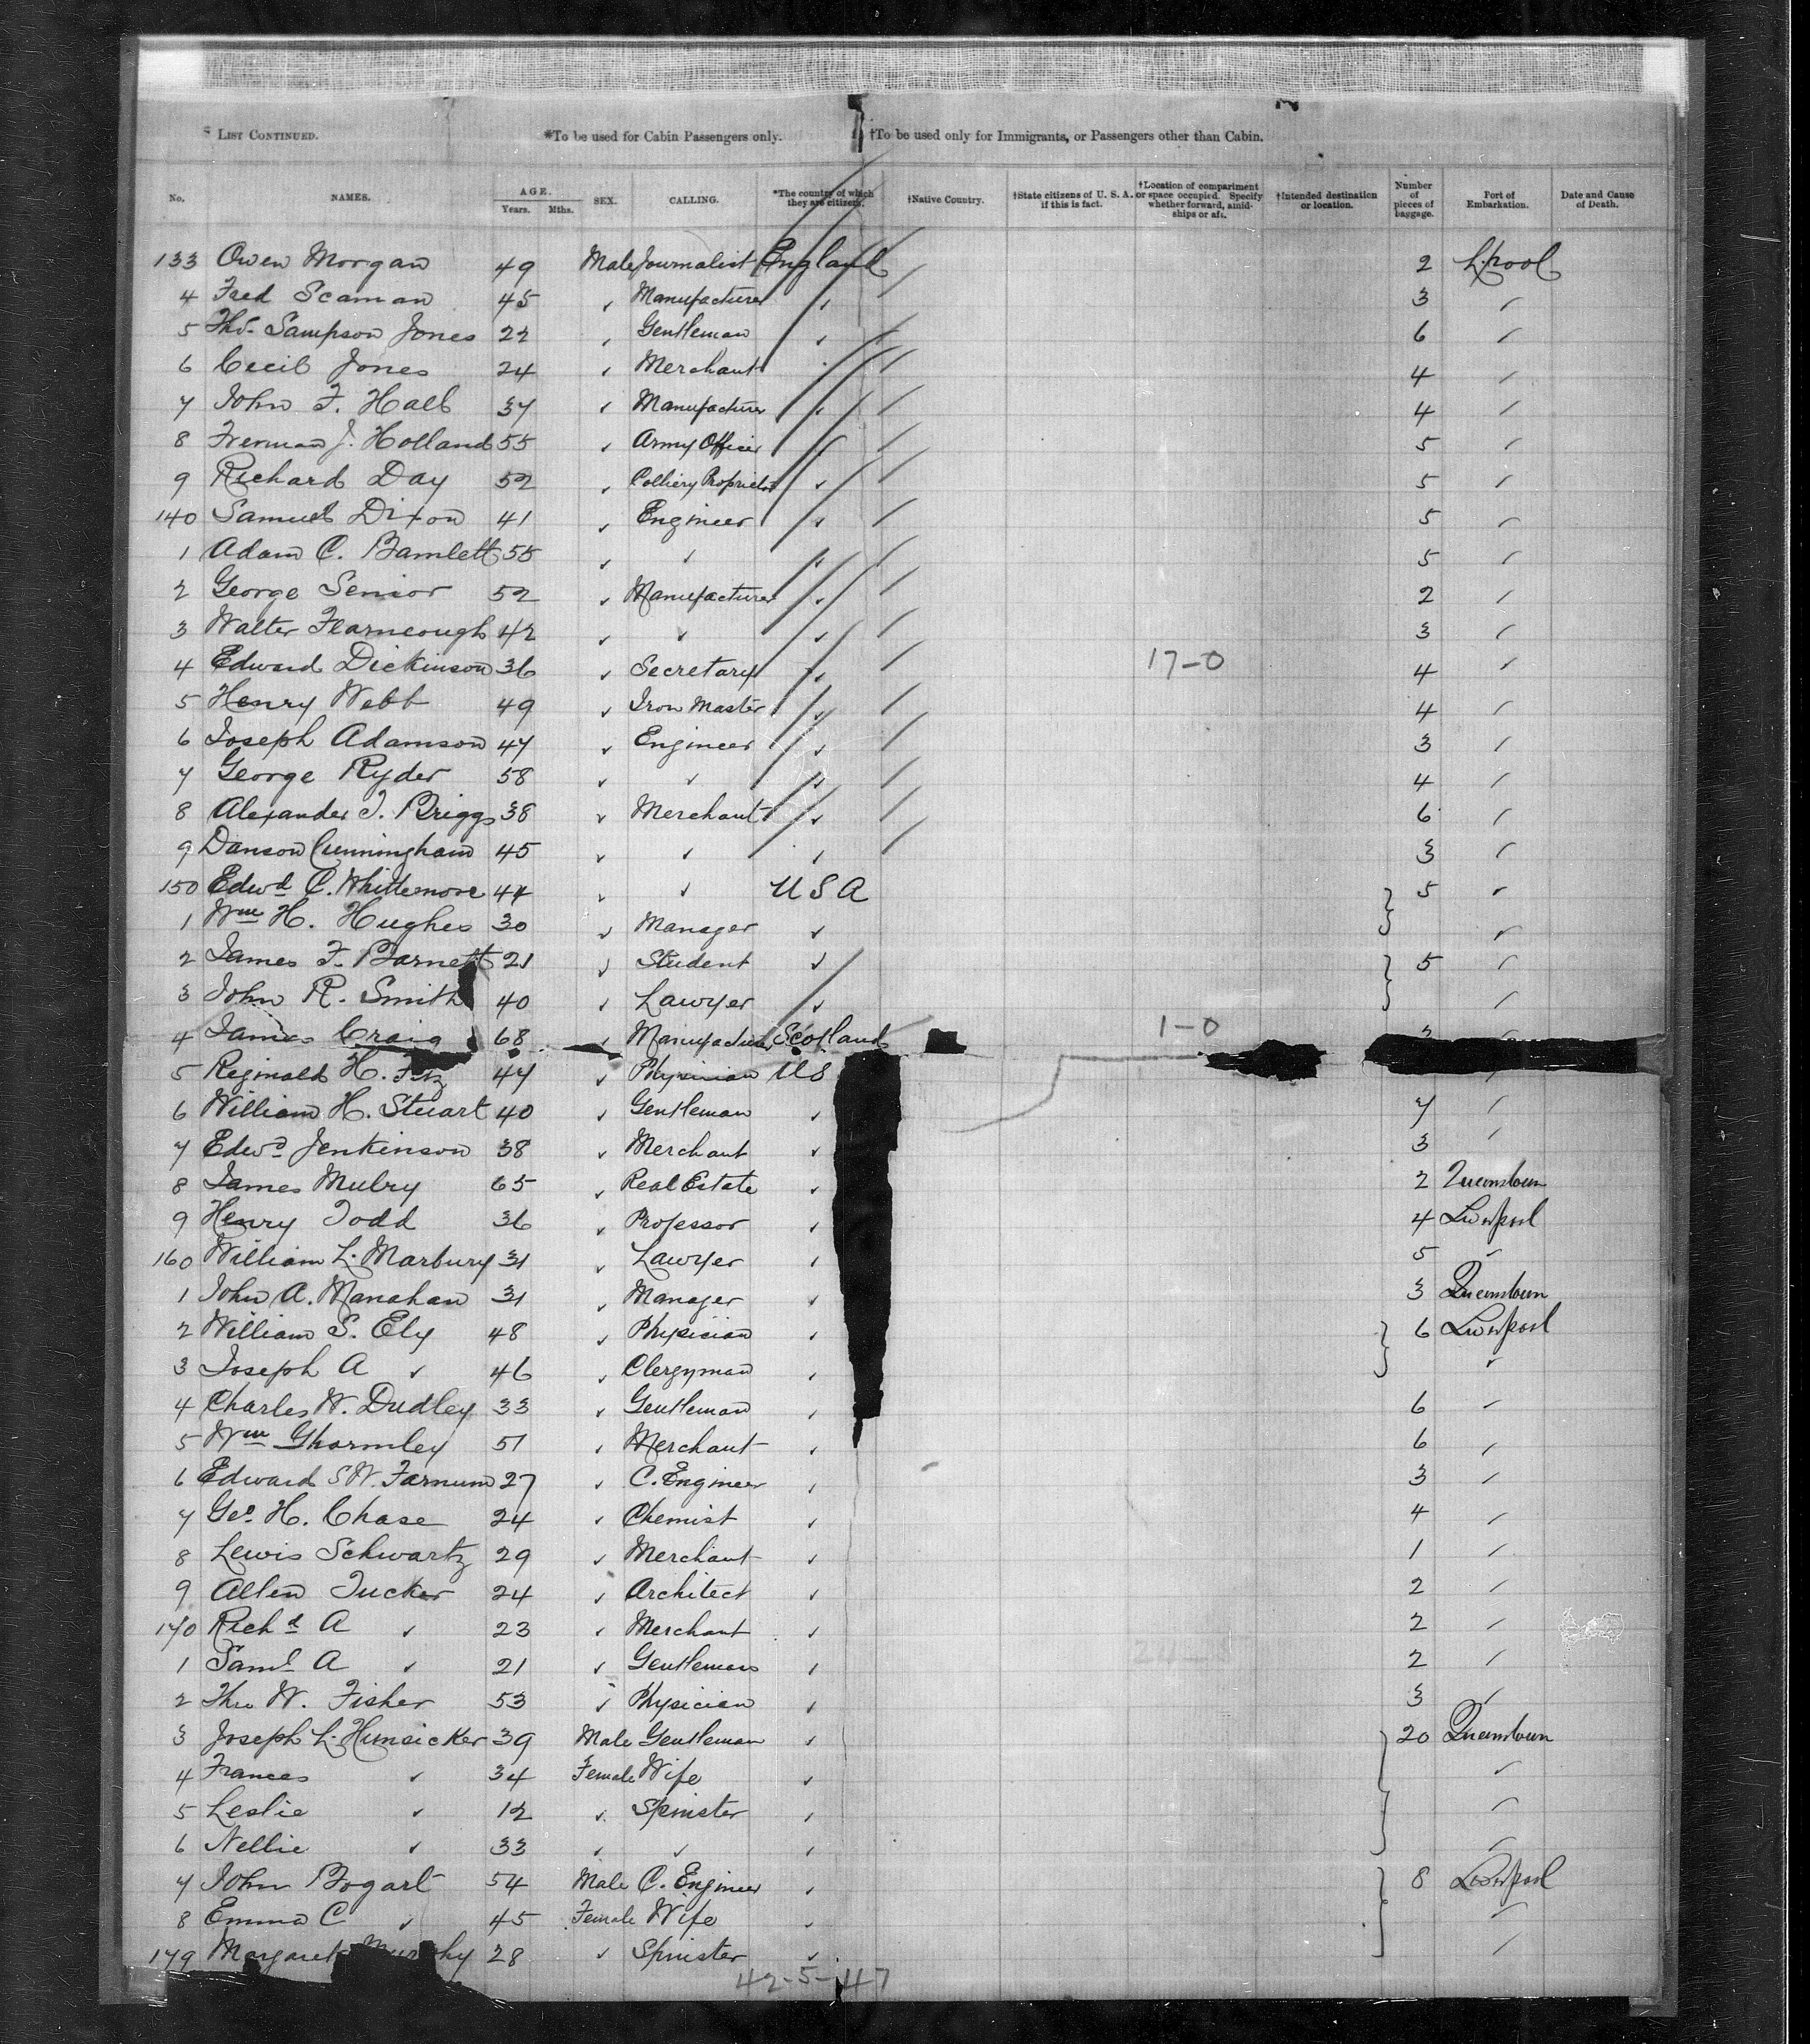 LIST CONTINUED. *To be used for Cabin Passengers only. †To be used only for Immigrants, or Passengers other than Cabin.
No. NAMES. AGE. Years. Mths. SEX. CALLING. *The country of which they are citizens. †Native Country. †State citizens of U. S. A. if this is fact. †Location of compartment or space occupied. Specify whether forward, amidships or aft. †Intended destination or location. Number of pieces of baggage. Port of Embarkation. Date and Cause of Death.
133 Owen Morgan 49 Male Journalist England 2 L.pool
4 Fred Scaman 45 ✓ Manufacturer ✓ 3 ✓
5 Thos. Sampson Jones 22 ✓ Gentleman ✓ 6 ✓
6 Cecil Jones 24 ✓ Merchant ✓ 4 ✓
7 John F. Hall 37 ✓ Manufacturer ✓ 4 ✓
8 J. Holland 55 ✓ Army Officer 5 ✓
9 Richard Day 52 ✓ Colliery Proprietor ✓ 5 ✓
140 Samuel Dixon 41 ✓ Engineer ✓ 5 ✓
1 Adam C. Bamlett 55 ✓ ✓ ✓ 5 ✓
2 George Senior 52 ✓ Manufacturer ✓ 2 ✓
3 Walter Fearneough 42 ✓ ✓ ✓ 3 ✓
4 Edward Dickinson 36 ✓ Secretary ✓ 17-0 4 ✓
5 Henry Webb 49 ✓ Iron Master ✓ 4 ✓
6 Joseph Adamson 47 ✓ Engineer ✓ 3 ✓
7 George Ryder 58 ✓ ✓ ✓ 4 ✓
8 Alexander J. Briggs 38 ✓ Merchant ✓ 6 ✓
9 Danson Cunningham 45 ✓ ✓ ✓ 3 ✓
150 Edwd C. Whittemore 44 ✓ ✓ U S A 5 ✓
1 Wm H. Hughes 30 ✓ Manager ✓ ✓
2 James F. Barnett 21 ✓ Student ✓ 5 ✓
3 John R. Smith 40 ✓ Lawyer ✓ ✓
4 James Craig 68 ✓ Manufacturer Scotland 1-0
5 Reginald H. Fitz 47 ✓ Physician U S
6 William H. Stuart 40 ✓ Gentleman ✓ 7 ✓
7 Edwd Jenkinson 38 ✓ Merchant ✓ 3 ✓
8 James Mulry 65 ✓ Real Estate ✓ 2 Queenstown
9 Henry Todd 36 ✓ Professor ✓ 4 Liverpool
160 William L. Marbury 31 ✓ Lawyer ✓ 5 ✓
1 John A. Manahan 31 ✓ Manager ✓ 3 Queenstown
2 William S. Ely 48 ✓ Physician ✓ 6 Liverpool
3 Joseph A ✓ 46 ✓ Clergyman ✓ ✓
4 Charles W. Dudley 33 ✓ Gentleman ✓ 6 ✓
5 Wm Ghormley 51 ✓ Merchant ✓ 6 ✓
6 Edward S W. Farnum 27 ✓ C. Engineer ✓ 3 ✓
7 Geo. H. Chase 24 ✓ Chemist ✓ 4 ✓
8 Lewis Schwartz 29 ✓ Merchant ✓ 1 ✓
9 Allen Tucker 24 ✓ Architect ✓ 2 ✓
170 Richd A ✓ 23 ✓ Merchant ✓ 2 ✓
1 Saml A ✓ 21 ✓ Gentleman ✓ 2 ✓
2 Theo W. Fisher 53 ✓ Physician ✓ 3 ✓
3 Joseph L. Hunsicker 39 Male Gentleman ✓ 20 Queenstown
4 Frances ✓ 34 Female Wife ✓ ✓
5 Leslie ✓ 12 ✓ Spinster ✓ ✓
6 Nellie ✓ 33 ✓ ✓ ✓ ✓
7 John Bogart 54 Male C. Engineer ✓ 8 Liverpool
8 Emma C ✓ 45 Female Wife ✓ ✓
179 Margaret Murphy 28 ✓ Spinster ✓ ✓
42-5-47